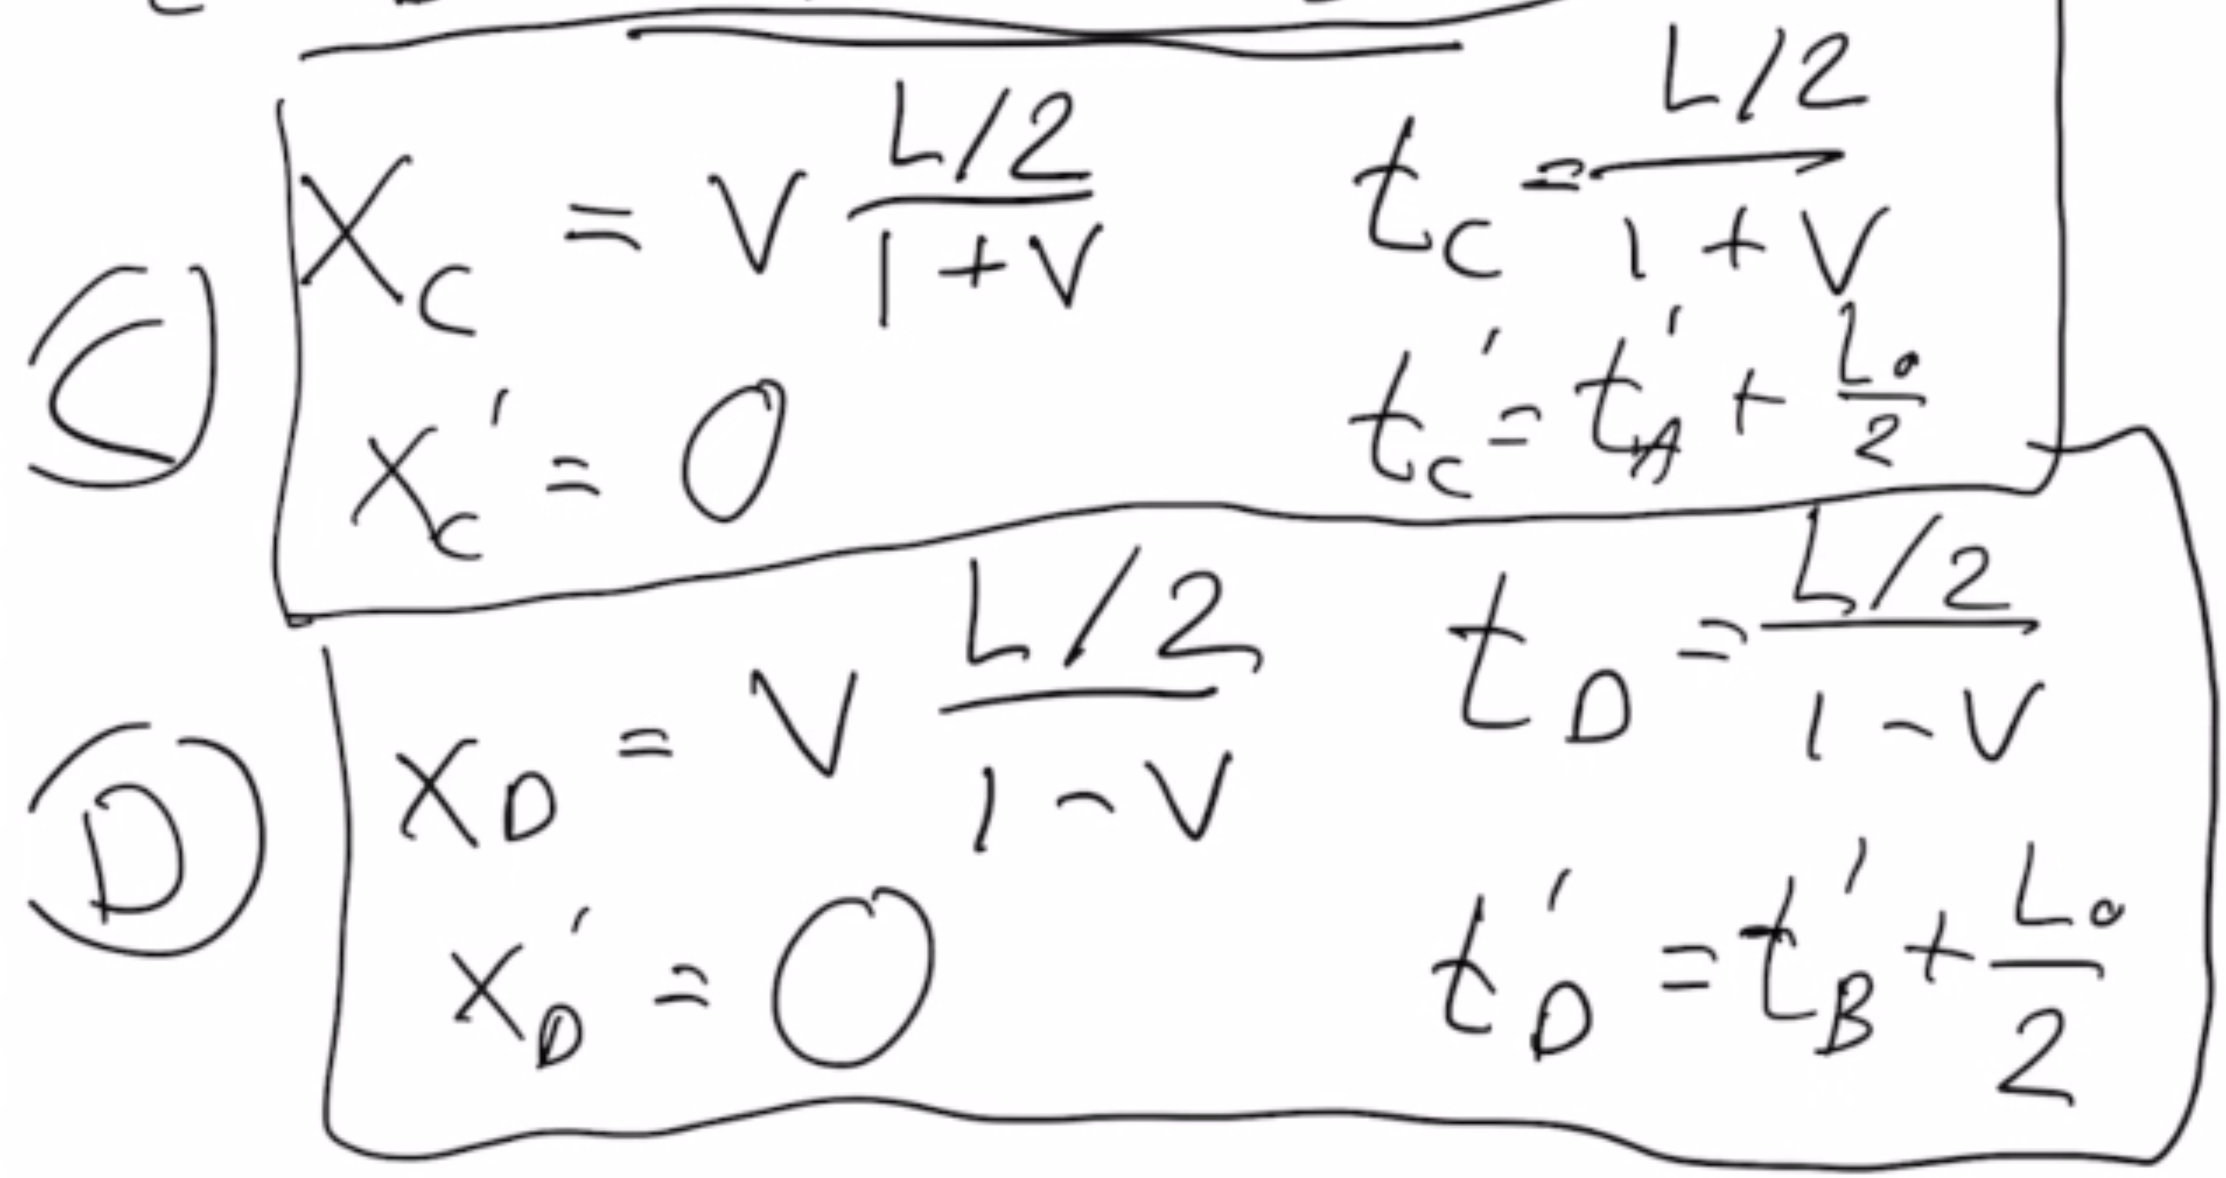 C
X_C = V (L/2)/(1+V)    t_C = (L/2)/(1+V)
X_C' = 0    t_C' = t_A' + L₀/2
D
X_D = V (L/2)/(1-V)    t_D = (L/2)/(1-V)
X_D' = 0    t_D' = t_B' + L₀/2